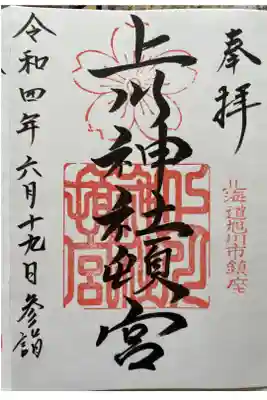 奉拝
北海道旭川市鎮座
上川神社頓宮
令和四年六月十九日参詣